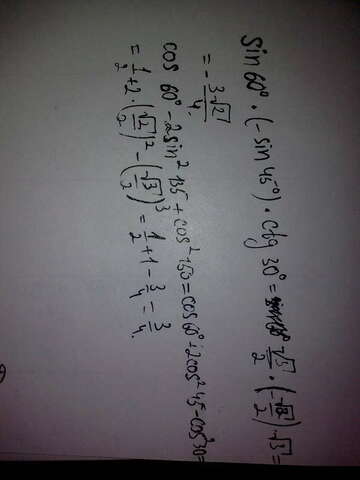 sin 60° · (- sin 45°) · ctg 30° = √3/2 · (-√2/2) · √3 =
= - 3√2/4.
cos 60° - 2 sin² 135 + cos² 150 = cos 60° + 2cos² 45 - cos² 30 =
= 1/2 + 2 · (√2/2)² - (√3/2)³ = 1/2 + 1 - 3/4 = 3/4.